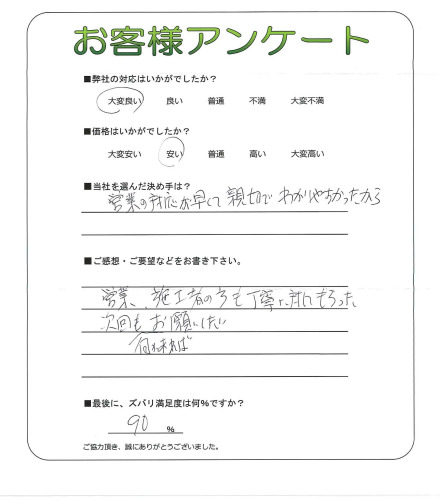 お客様アンケート
■弊社の対応はいかがでしたか？
大変良い 良い 普通 不満 大変不満
■価格はいかがでしたか？
大変安い 安い 普通 高い 大変高い
■当社を選んだ決め手は？
営業の対応が早くて親切でわかりやすかったから
■ご感想・ご要望などをお書き下さい。
営業、施工者の方も丁寧に対してもらった
次回もお願いしたい
何かあれば
■最後に、ズバリ満足度は何％ですか？
90 %
ご協力頂き、誠にありがとうございました。